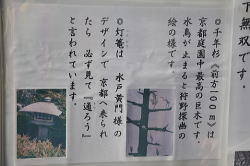 下無双です。
◎千年杉《前方100m》は
京都庭園中最高の巨木です。
水鳥が止まると狩野探幽の
絵の様です。
◎灯篭は 水戸黄門様の
デザインで 京都へ来られ
たら 必ず見て『通ろう』
と言われています。